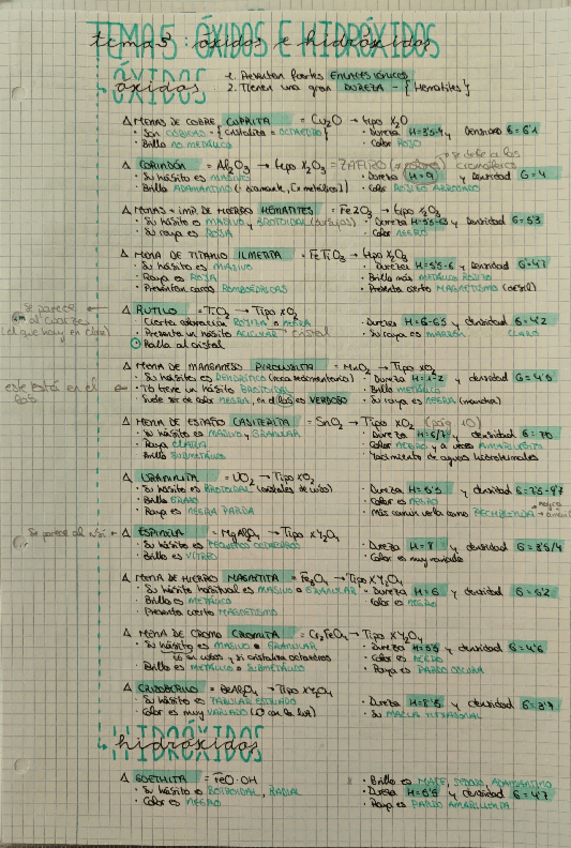 TEMA 5: ÓXIDOS E HIDRÓXIDOS
tema 5: óxidos e hidróxidos
ÓXIDOS
óxidos
1. Presentan fuertes ENLACES IÓNICOS
2. Tienen una gran DUREZA - {Hematites}
Δ MENAS DE COBRE, CUPRITA = Cu2O → tipo X2O
· Son CÚBICAS - {cristaliza = OCTAEDRO}
· Brillo
· Dureza H=3'5-4 y densidad G=6'1
· Color ROJO
Δ CORINDÓN = Al2O3 → tipo X2O3 = ZAFIRO
→ se debe a los cromóforos
· Su hábito es MASIVO
· Brillo ADAMANTINO
· Dureza H=9 y densidad G=4
· Color
Δ MENAS + imp. DE HIERRO HEMATITES = Fe2O3 → tipo X2O3
· Su hábito es MASIVO y BOTROIDAL
· Su raya es ROJA
· Dureza H=5'5-6'5 y densidad G=5'3
· Color NEGRO
Δ MENA DE TITANIO ILMENITA = FeTiO3 → tipo X2O3
· Su hábito es MASIVO
· Raya es ROJA
· Presentan caras ROMBOÉDRICAS
· Dureza H=5'5-6 y densidad G=4'7
· Brillo más METÁLICO
· Presenta cierto MAGNETISMO (débil)
Se parece al cuarzo (el que hay en clase) ←
Δ RUTILO = TiO2 → Tipo XO2
· Cierta coloración ROJIZA o NEGRA
· Presenta hábito ACICULAR → cristal
· Ralla al cristal
· Dureza H=6-6'5 y densidad G=4'2
· Su raya es MARRÓN CLARO
Δ MENA DE MANGANESO PIROLUSITA = MnO2 → Tipo XO2
· Su hábito es DENDRÍTICO (roca sedimentaria)
este está en el ←
· Tb tiene un hábito BOTROIDAL
· Suele ser de color NEGRA, en el es VERDOSO
· Dureza H=1-2 y densidad G=4'5
· Brillo METÁLICO
· Su raya es NEGRA (mancha)
Δ MENA DE ESTAÑO CASITERITA = SnO2 → Tipo XO2 (pág 10)
· Su hábito es MASIVO y GRANULAR
· Raya
· Brillo SUBMETÁLICO
· Dureza H=6/7 y densidad G=7'0
· Color NEGRO y a veces AMARILLENTO
· Yacimiento de aguas hidrotermales
Δ URANINITA = UO2 → Tipo XO2
· Su hábito es BOTROIDAL
· Brillo GRASO
· Raya es NEGRA PARDA
· Dureza H=5'5 y densidad G=7'5-9'7
· Color es NEGRO
· Más común verla como PECHBLENDA
Se parece al ←
Δ ESPINELA = MgAl2O4 → Tipo XY2O4
· Su hábito es PEQUEÑOS OCTAEDROS
· Brillo es VÍTREO
· Dureza H=8 y densidad G=3'5/4
· Color es muy variado
Δ MENA DE HIERRO MAGNETITA = Fe3O4 → Tipo XY2O4
· Su hábito habitual es MASIVO o GRANULAR
· Brillo es METÁLICO
· Presenta cierto MAGNETISMO
· Dureza H=6 y densidad G=5'2
· Color es NEGRO
Δ MENA DE CROMO CROMITA = Cr2FeO4 → Tipo XY2O4
· Su hábito es MASIVO o GRANULAR
y si cristaliza octaedros
· Brillo es METÁLICO o SUBMETÁLICO
· Dureza H=5'5 y densidad G=4'6
· Color es NEGRO
· Raya es PARDO OSCURA
Δ CRISOBERILO = BeAl2O4 → Tipo XY2O4
· Su hábito es TABULAR ESTRIADO
· Color es muy VARIADO
· Dureza H=8'5 y densidad G=3'7
· Su MACLA HEXAGONAL
HIDRÓXIDOS
hidróxidos
Δ GOETHITA = FeO·OH
· Su hábito es BOTROIDAL, RADIAL
· Color es NEGRO
· Brillo es MATE, SEDOSO, ADAMANTINO
· Dureza H=5'5 y densidad G=4'7
· Raya es PARDO AMARILLENTA